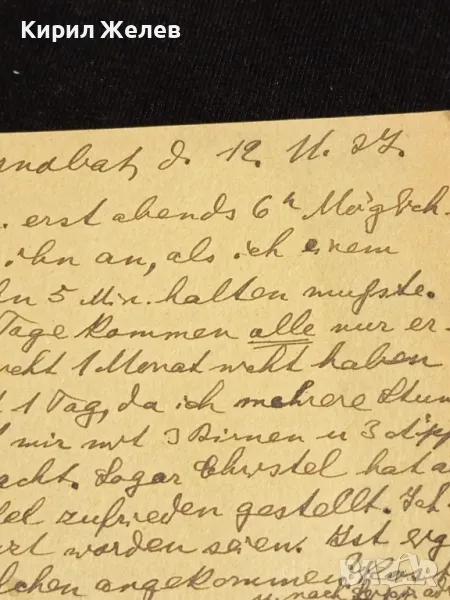 Кирил Желев
rnobat, d. 12. 11. 37.
. erst abends 6 h Möglich-
ihn an, als ich einem
ln 5 Min. halten mußte.
Tage kommen alle nur er-
cht 1 Monat nicht haben
t 1 Tag, da ich mehrere Stun
mir mit 3 Birnen u 3 Äpp
acht. Sogar Christel hat a
fel zufrieden gestellt. Ich
ert worden seien. Ist erg
lchen angekommen
nach